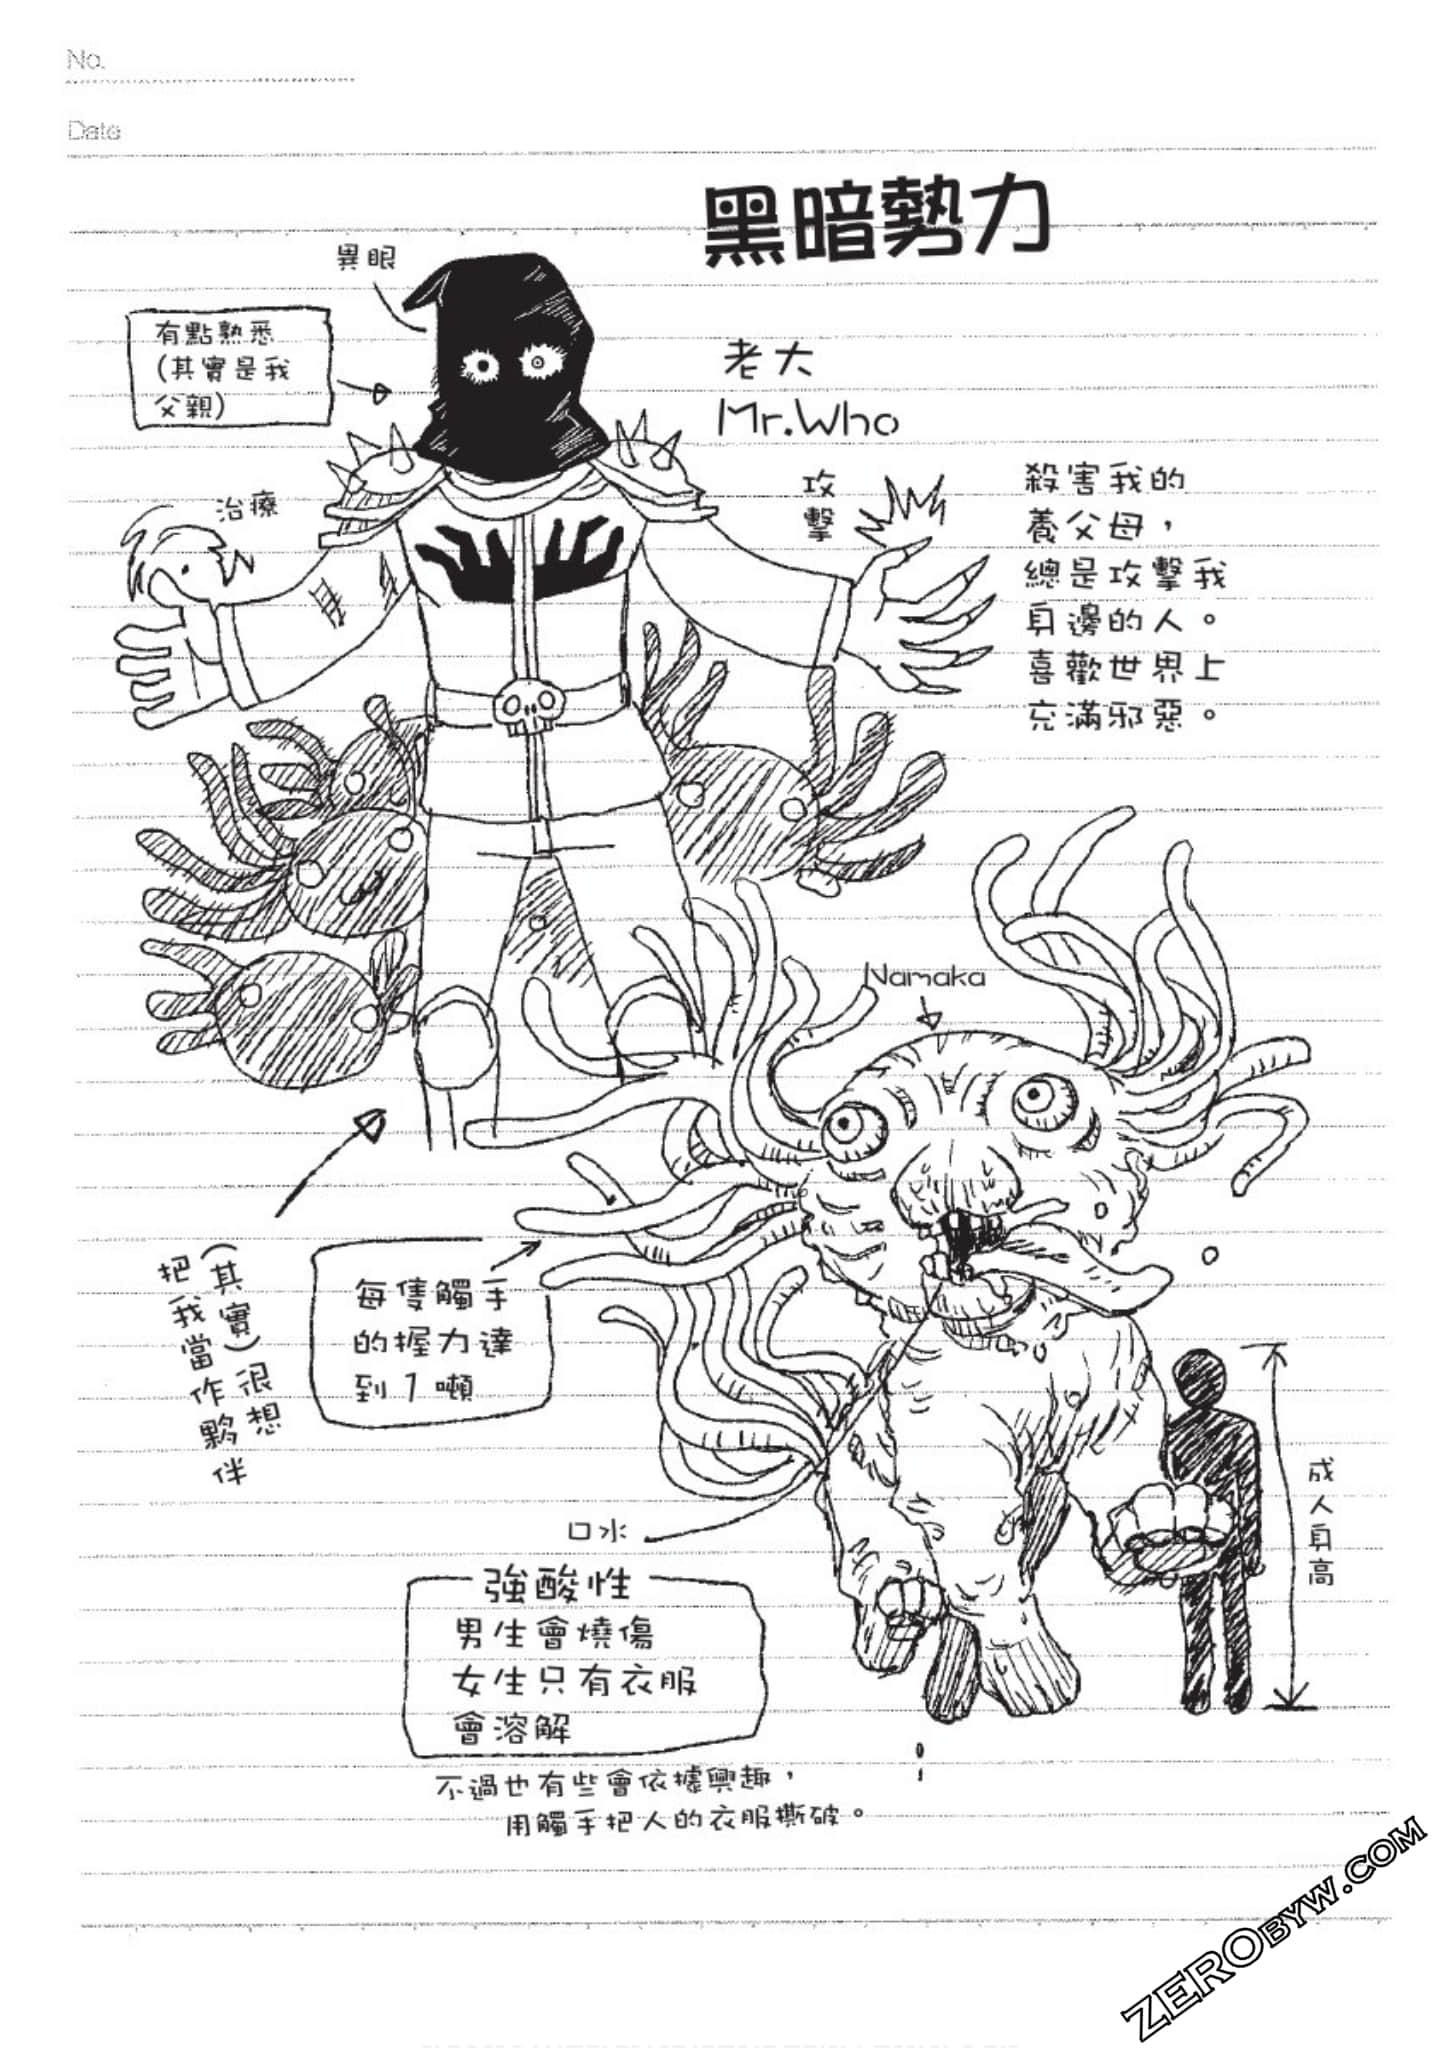 No.
Date
黑暗勢力
異眼
有點熟悉
(其實是我
父親)
老大
Mr.Who
治療
攻擊
殺害我的
養父母，
總是攻擊我
身邊的人。
喜歡世界上
充滿邪惡。
Namaka
(其實)很想
把我當作夥伴
每隻觸手
的握力達
到1噸
成人身高
口水
強酸性
男生會燒傷
女生只有衣服
會溶解
不過也有些會依據興趣，
用觸手把人的衣服撕破。
ZEROBYW.COM